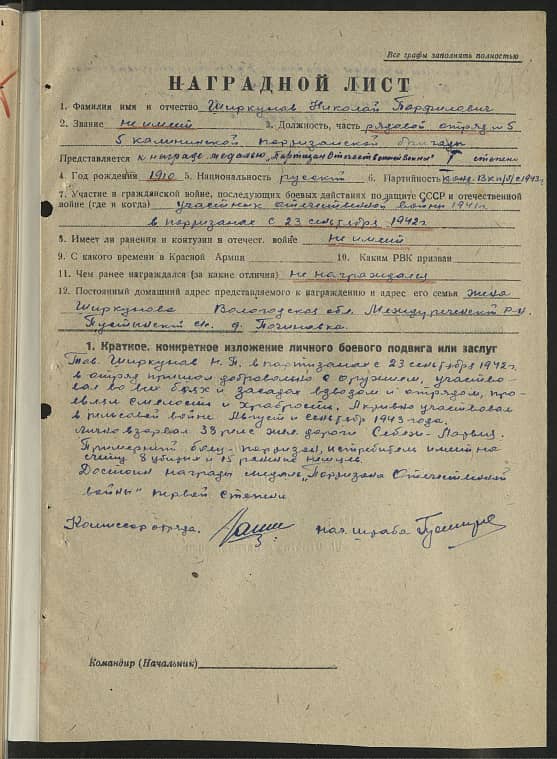 Все графы заполнять полностью
НАГРАДНОЙ ЛИСТ
1. Фамилия имя и отчество Ширкунов Николай Парфилович
2. Звание не имеет 3. Должность, часть рядовой отряд № 5
5 калининской партизанской бригады
Представляется к награде медалью „Партизан Отечественной Войны" I степени
4. Год рождения 1910 5. Национальность русский 6. Партийность канд. ВКП(б) с 1943 г.
7. Участие в гражданской войне, последующих боевых действиях по защите СССР и отечественной
войне (где и когда) участник отечественной войны 1941 г.
в партизанах с 23 сентября 1942 г.
8. Имеет ли ранения и контузии в отечест. войне не имеет
9. С какого времени в Красной Армии 10. Каким РВК призван
11. Чем ранее награждался (за какие отличия) не награждался
12. Постоянный домашний адрес представляемого к награждению и адрес его семьи жена
Ширкунова Вологодская обл. Междуреченский р-н.
Пустынский с/с. д. Починовка.
1. Краткое, конкретное изложение личного боевого подвига или заслуг
Тов. Ширкунов Н. П. в партизанах с 23 сентября 1942 г.
в отряд пришел добровольно с оружием, участво
вал во всех боях и засадах взводом и отрядом, про-
являл смелость и храбрость. Активно участвовал
в рельсовой войне Август и сентябрь 1943 года.
Лично взорвал 38 рельс жел. дороги Себеж-
Примерный боец-партизан, истребитель имеет на
счету 8 убитых и 15 раненых немцев.
Достоин награды медаль „Партизана Отечественной
войны" первой степени
Комиссар отряда. нач. штаба
Командир (Начальник)